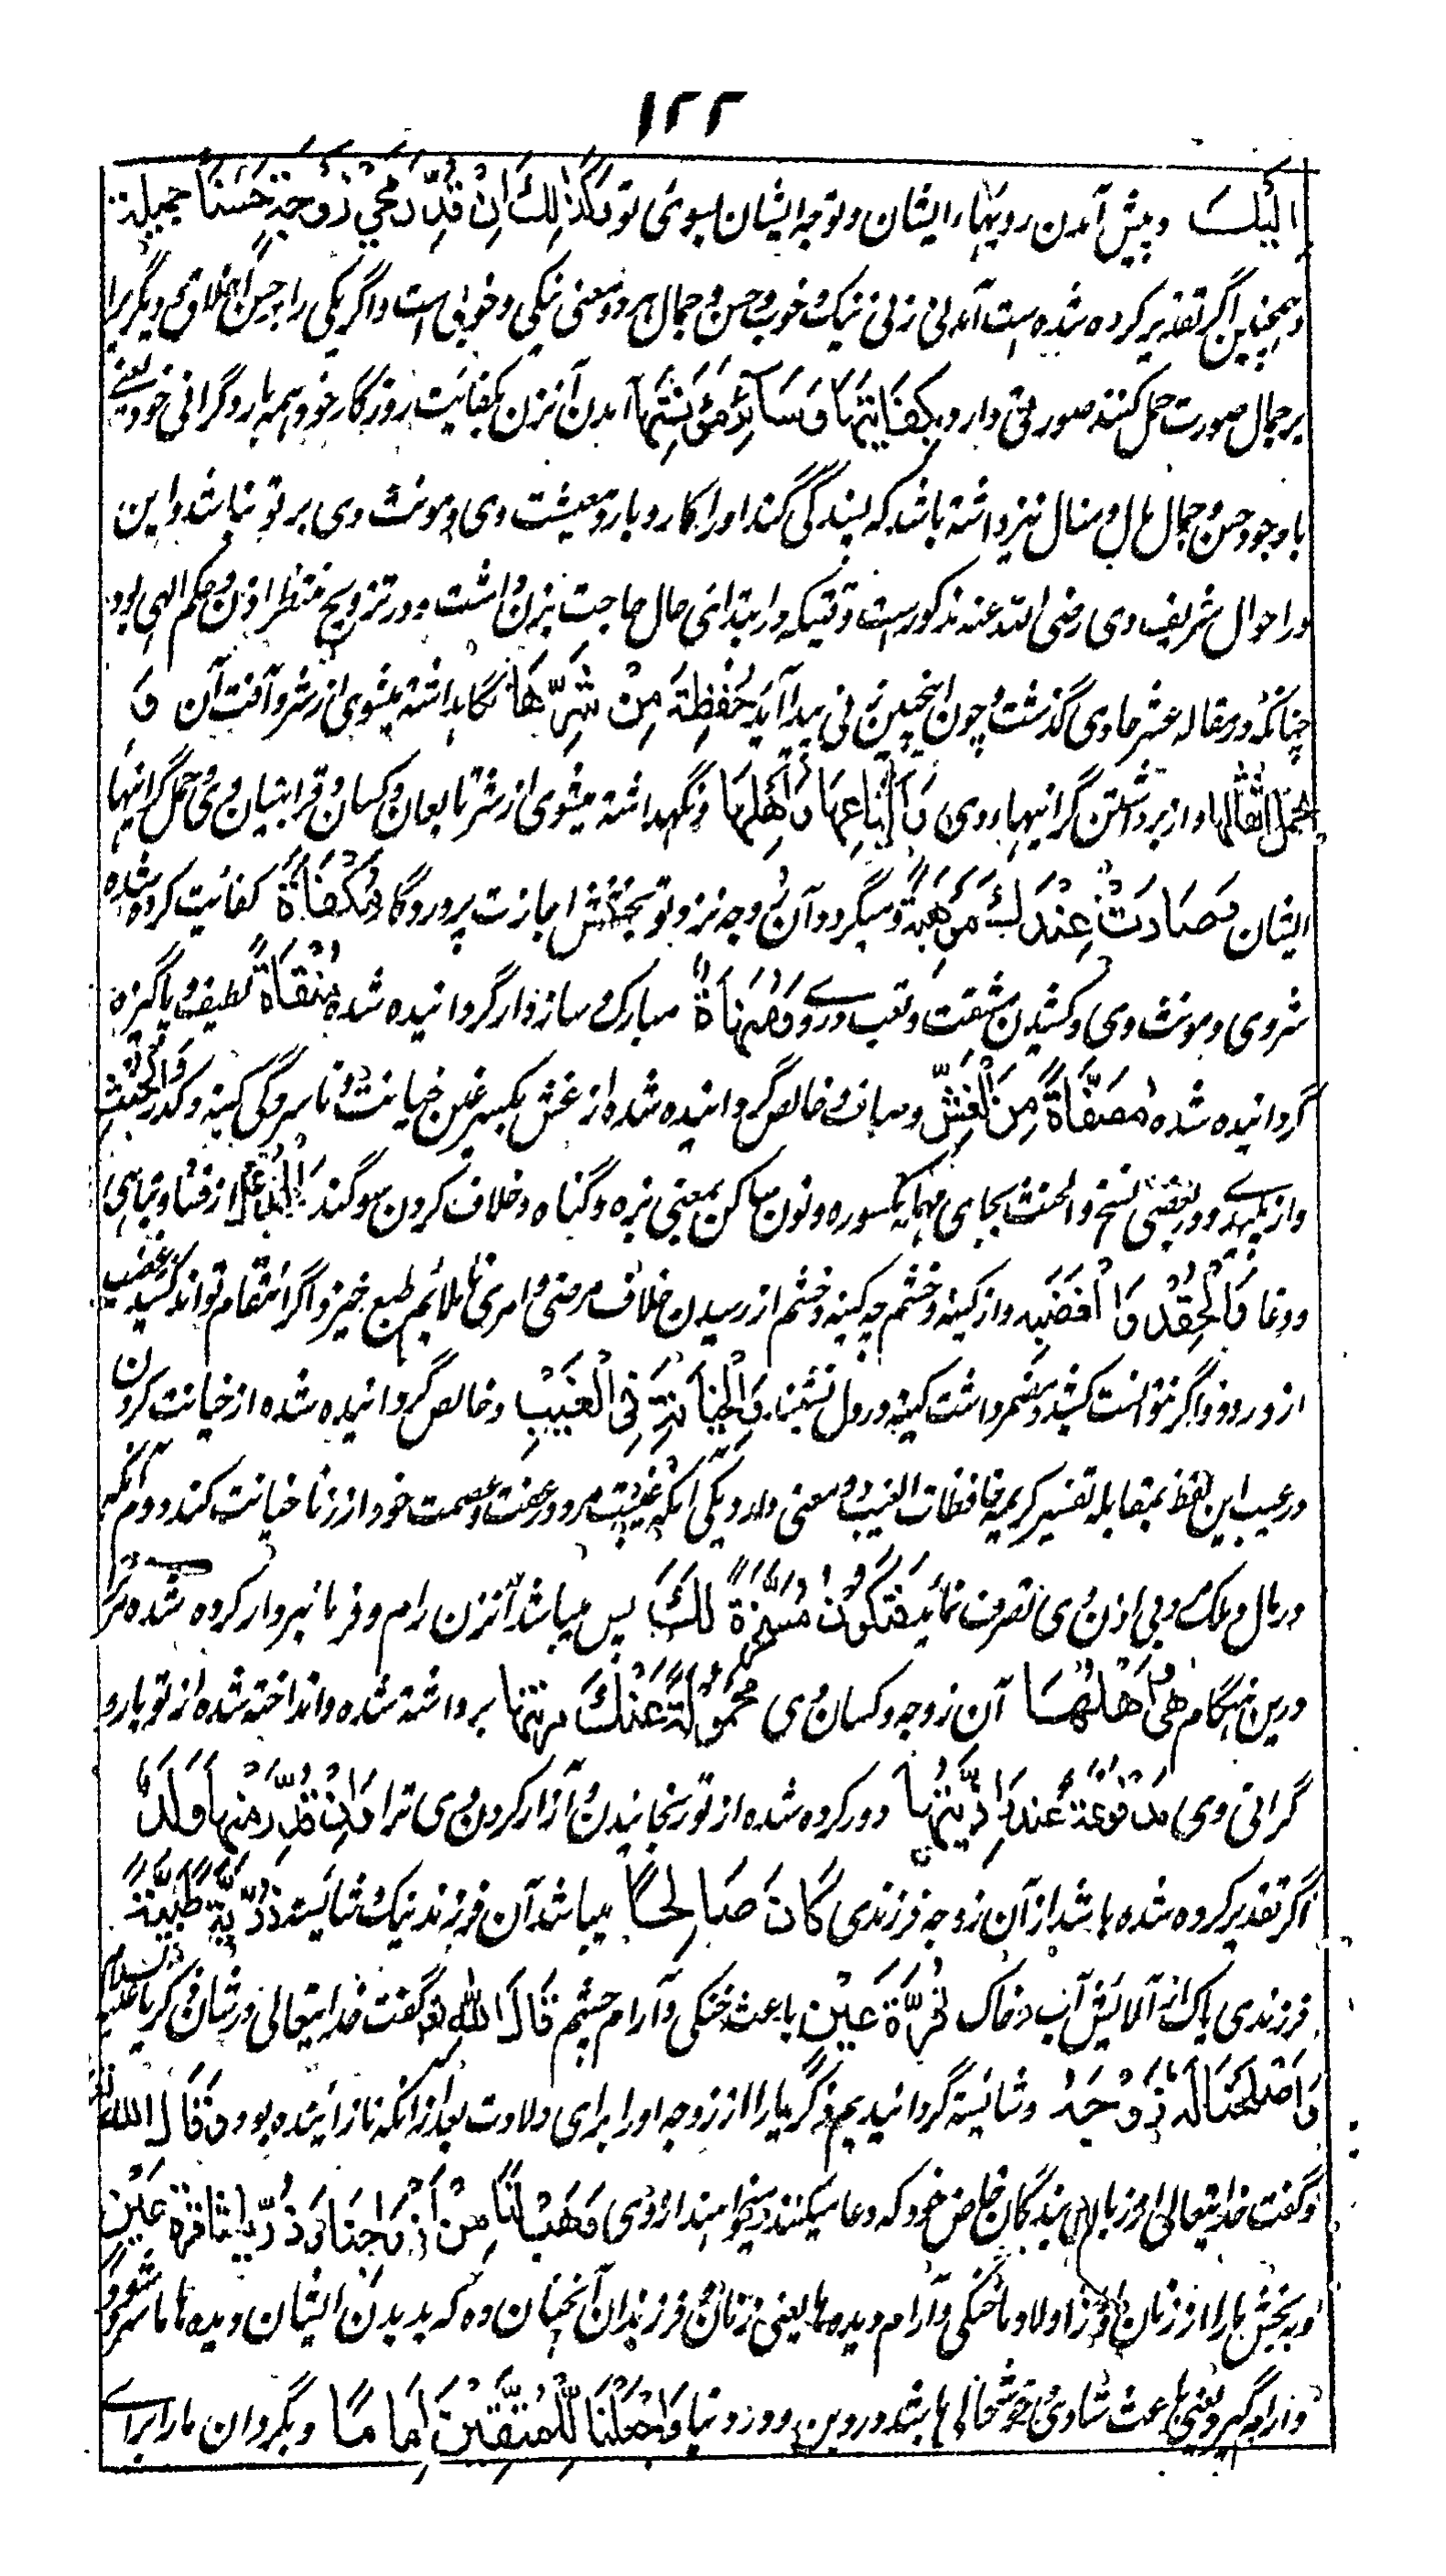 ١٢٢
الَیْكَ و پیش آمدن رویهاء ایشان و توجه ایشان بسوئ تو وَكَذَالِكَ اِنْ قُدِّرَ مَجِيْ زَوْجَةٍ حَسَنَاً جَمِيلة
و همچنین اگر تقدیر کرده شده است آمدنی زنی نیک و خوب و حسن و جمال هر دو بمعنی نیکی و خوبی است و اگر یکی را بر حسن اخلاق و دیگریرا
بر جمال صورت حمل کنند صورتی دارد بِكِفَايَتِهَا وَسَائِرِ مَؤُنَتِهَا آمدن آنزن بکفایت روزگار خود و همه بار و گرانی خود یعنی
با وجود حسن و جمال مال و منال نیز داشته باشد که بسندگی کند او را کاروبار و معیشت وی و مونث وی بر تو نباشد و این
در احوال شریف وی رضی الله عنه مذکورست وقتیکه در ابتدای حال حاجت بزن داشت و در تزویج منتظر اذن و حکم الهی بود
چنانکه در مقاله عشر حاوی گذشت و چون اینچنین زنی پیدا آید حُفِظْتَ مِنْ شَرِّهَا نگاهداشته میشوی از شر و آفت آن وَ
حَمْلِ اَثْقَالِهَا و از برداشتن گرانیهاء وی وَاَتْبَاعِهَا وَاَهْلِهَا و نگهداشته میشوی از شر تابعان و کسان و قرابتیان وی و حمل گرانیها
ایشان فَصَارَتْ عِنْدَكَ مَوْهِبَةً و میگردد آن زوجه نزد تو بخشش اجازت پروردگار مُكْفَاةً کفایت کرده شده
شر وی و مونث وی و کشیدن مشقت و تعب در وی وَمُهَنَّاةً مبارک و سازوار گردانیده شده مُنْقَاةً لطیف و پاکیزه
گردانیده شده مُصَفَّاةً مِنَ الْغِشِّ و صاف و خالص گردانیده شده از غش بکسر غین خیانت و ناسرگی کینه و کدر وَالْخُبْثِ
و از پلیدی و در بعضی نسخ والحنث بحای مهمله مکسوره و نون ساکن بمعنی بزه و گناه و خلاف کردن سوگند وَالدَّغَلِ از فساد و تباهی
و دغا وَالْحِقْدِ وَالْغَضَبِ و از کینه و خشم چه کینه و خشم از رسیدن خلاف مرضی و امری ناملائم طبع خیزد اگر انتقام تواند کشید غضب
از و رود و اگر نتوانست کشید و مضمر داشت کینه در دل نشیند وَالْخِيَانَةِ فِي الْغَيْبِ و خالص گردانیده شده از خیانت کردن
در غیب این لفظ بمقابله تفسیر کریمه حافظات للغیب دو معنی دارد یکی آنکه در غیبت مرد و عفت و عصمت خود از زنا خیانت کند دوم آنکه
در مال و ملک وی بی اذن وی تصرف نماید فَتَكُوْنُ مُسَخَّرَةً لَكَ پس میباشد آنزن رام و فرمانبردار کرده شده مر ترا
درین هنگام هِيَ وَاَهْلُهَا آن زوجه و کسان وی مَحْمُوْلَةً عَنْكَ مؤنتها برداشته شده و انداخته شده از تو بار و
گرانی وی مَدْفُوْعَةً عَنْكَ اَذِيَّتُهَا دور کرده شده از تو رنجانیدن و آزار کردن وی ترا وَاِنْ قُدِّرَ مِنْهَا وَلَدٌ
اگر تقدیر کرده شده باشد از آن زوجه فرزندی كَانَ صَالِحًا میباشد آن فرزند نیک و شایسته ذُرِّيَّةً طَيِّبَةً
فرزندی پاک از آلایش آب و خاک قُرَّةَ عَيْنٍ باعث خنکی و آرام چشم قَالَ اللهُ تع گفت خدایتعالی در شان زکریا علیه السلام
وَاَصْلَحْنَا لَهُ زَوْجَهُ و شایسته گردانیدیم زکریا را از زوجه او را برای ولادت بعد از آنکه نازاینده بود وَقَالَ اللهُ تع
و گفت خدایتعالی از زبان بندگان خاص خود که دعا میکنند و میخواهند از وی وَهَبْ لَنَا مِنْ اَزْوَاجِنَا وَذُرِّيَّاتِنَا قُرَّةَ عَيْنٍ
و ببخش ما را از زنان ما و از اولاد ما خنکی و آرام دیده ها یعنی زنان و فرزندان آنچنان ده که بدیدن ایشان دیده ها ما سرد شود
و آرام گیرد یعنی باعث شادی و خوشحالی باشد در دین و در دنیا وَاجْعَلْنَا لِلْمُتَّقِيْنَ اِمَامًا و بگردان ما را برای